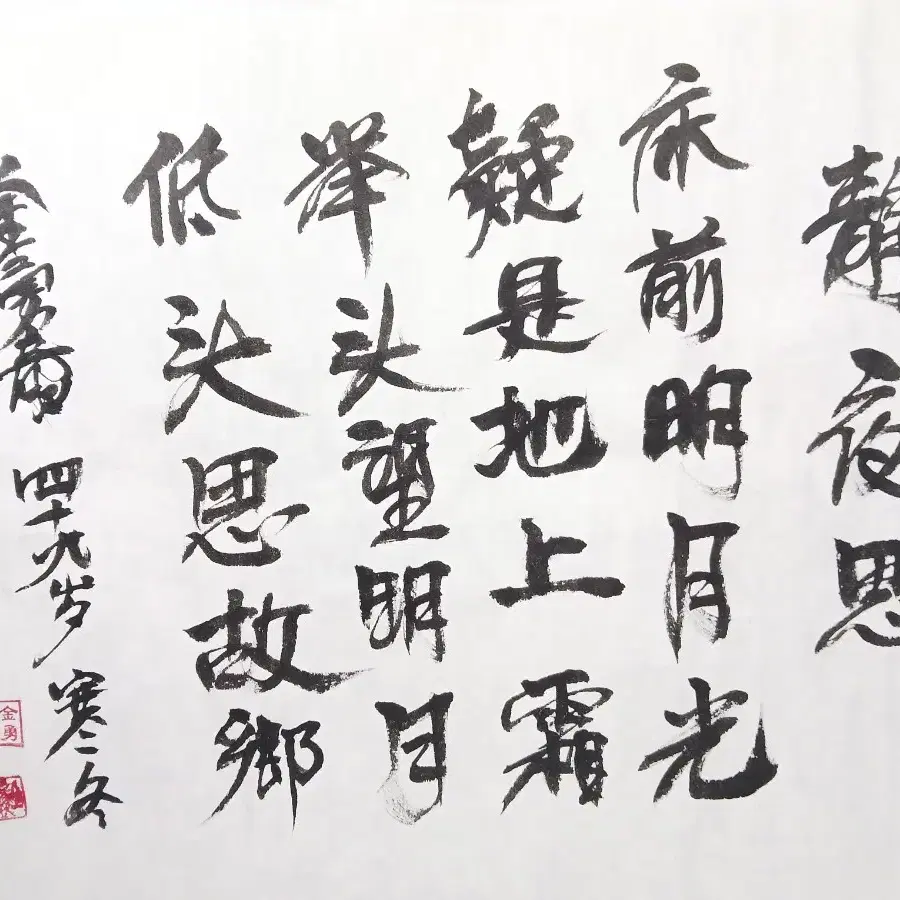 静夜思
床前明月光
疑是地上霜
举头望明月
低头思故鄉
金勇 四十九岁 寒冬
金勇